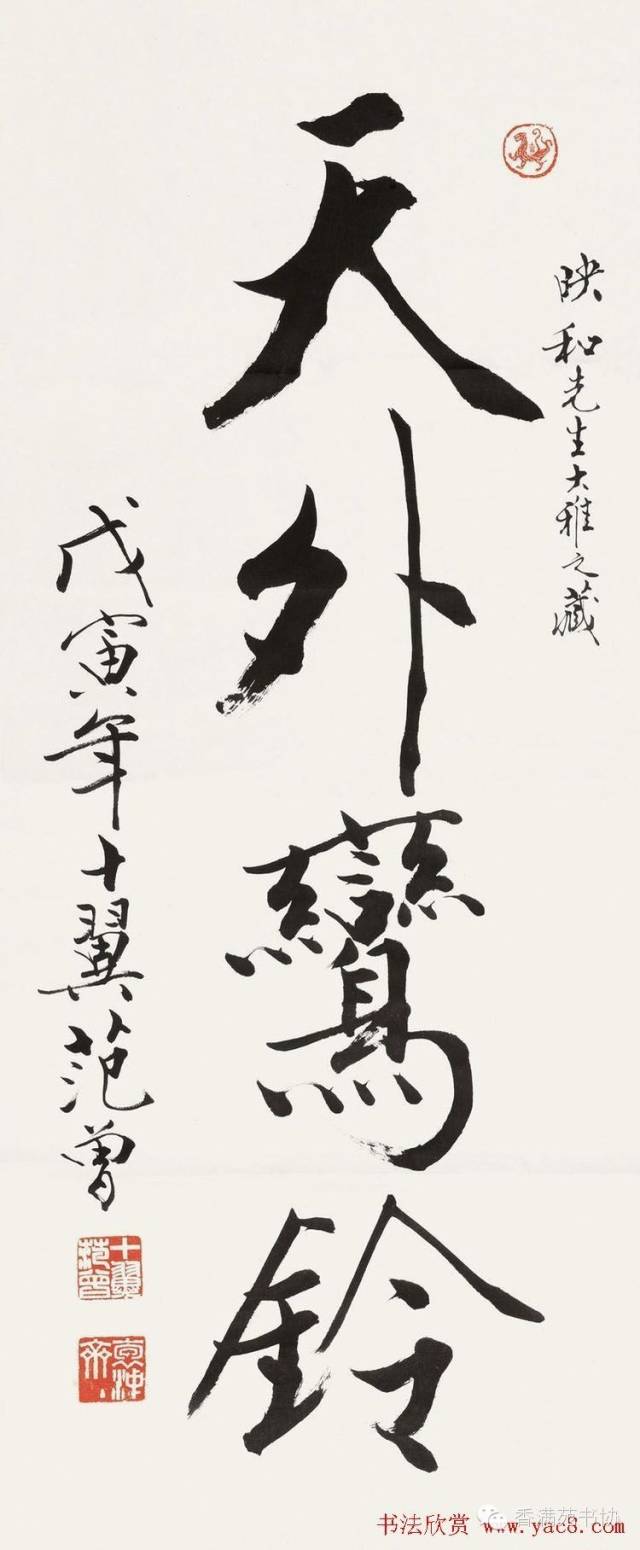 映和先生大雅之藏
天外鸞鈴
戊寅年十翼范曾
十翼范曾
香满苑书协
书法欣赏 www.yac8.com